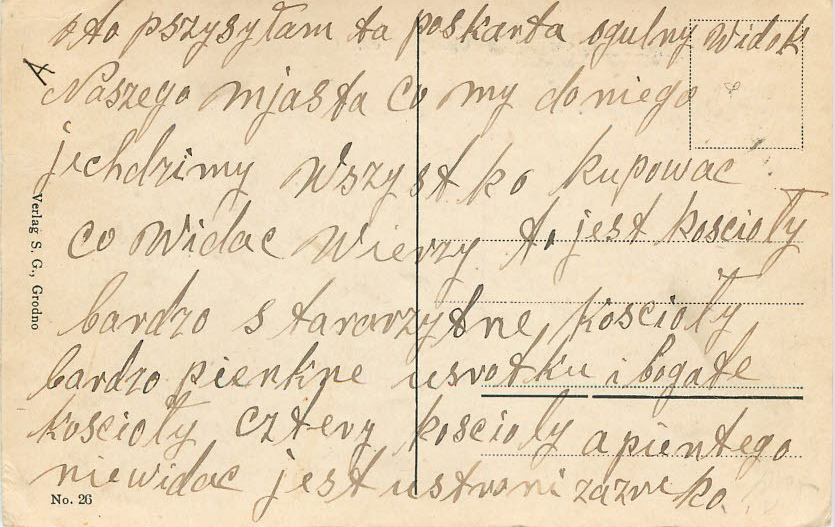 A to pszysyłam ta poskarta ogulny widok
Naszego mjasta co my do niego
jechdzimy wszystko kupowac
co widac wierzy to jest koscioły
bardzo starorzytne koscioły
bardzo pienkne usrotku i bogate
koscioły cztery koscioły a pientego
niewidac jest ustroni zazreko
Verlag S. G., Grodno
No. 26